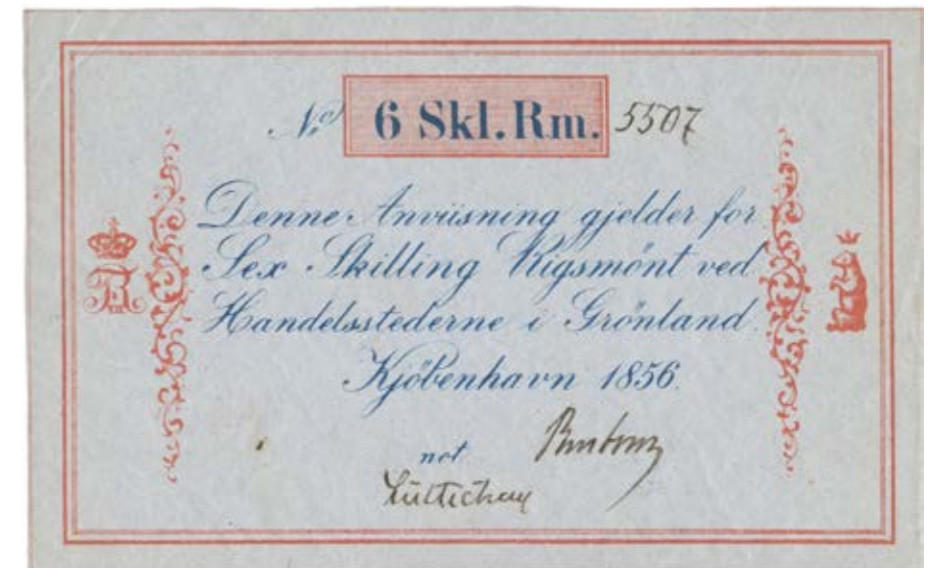 No 6 Skl. Rm. 5507
Denne Anviisning gjelder for
Sex Skilling Rigsmönt ved
Handelsstederne i Grönland.
Kjöbenhavn 1856.
not
Lüttichau